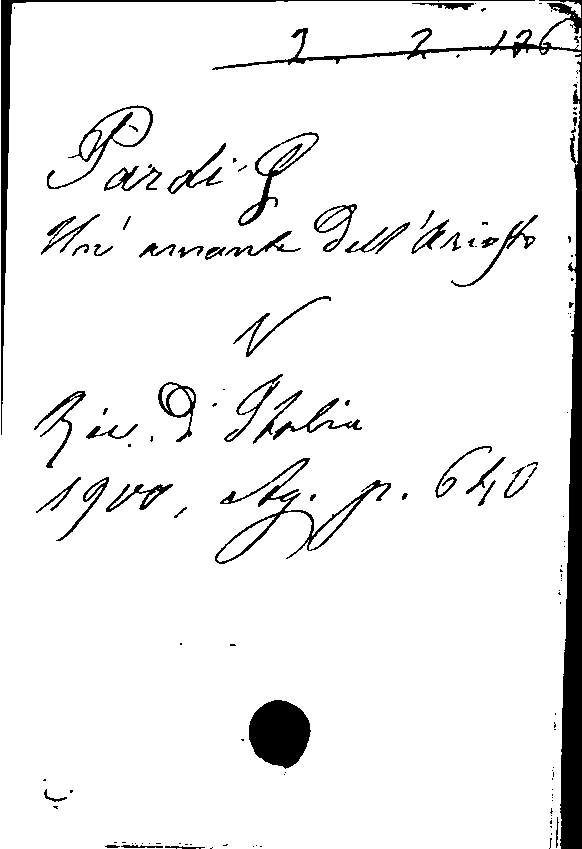 2. 2. 126
Pardi G
Un' amante dell'Ariosto
V
Riv. d'Italia
1900, Ag. p. 640